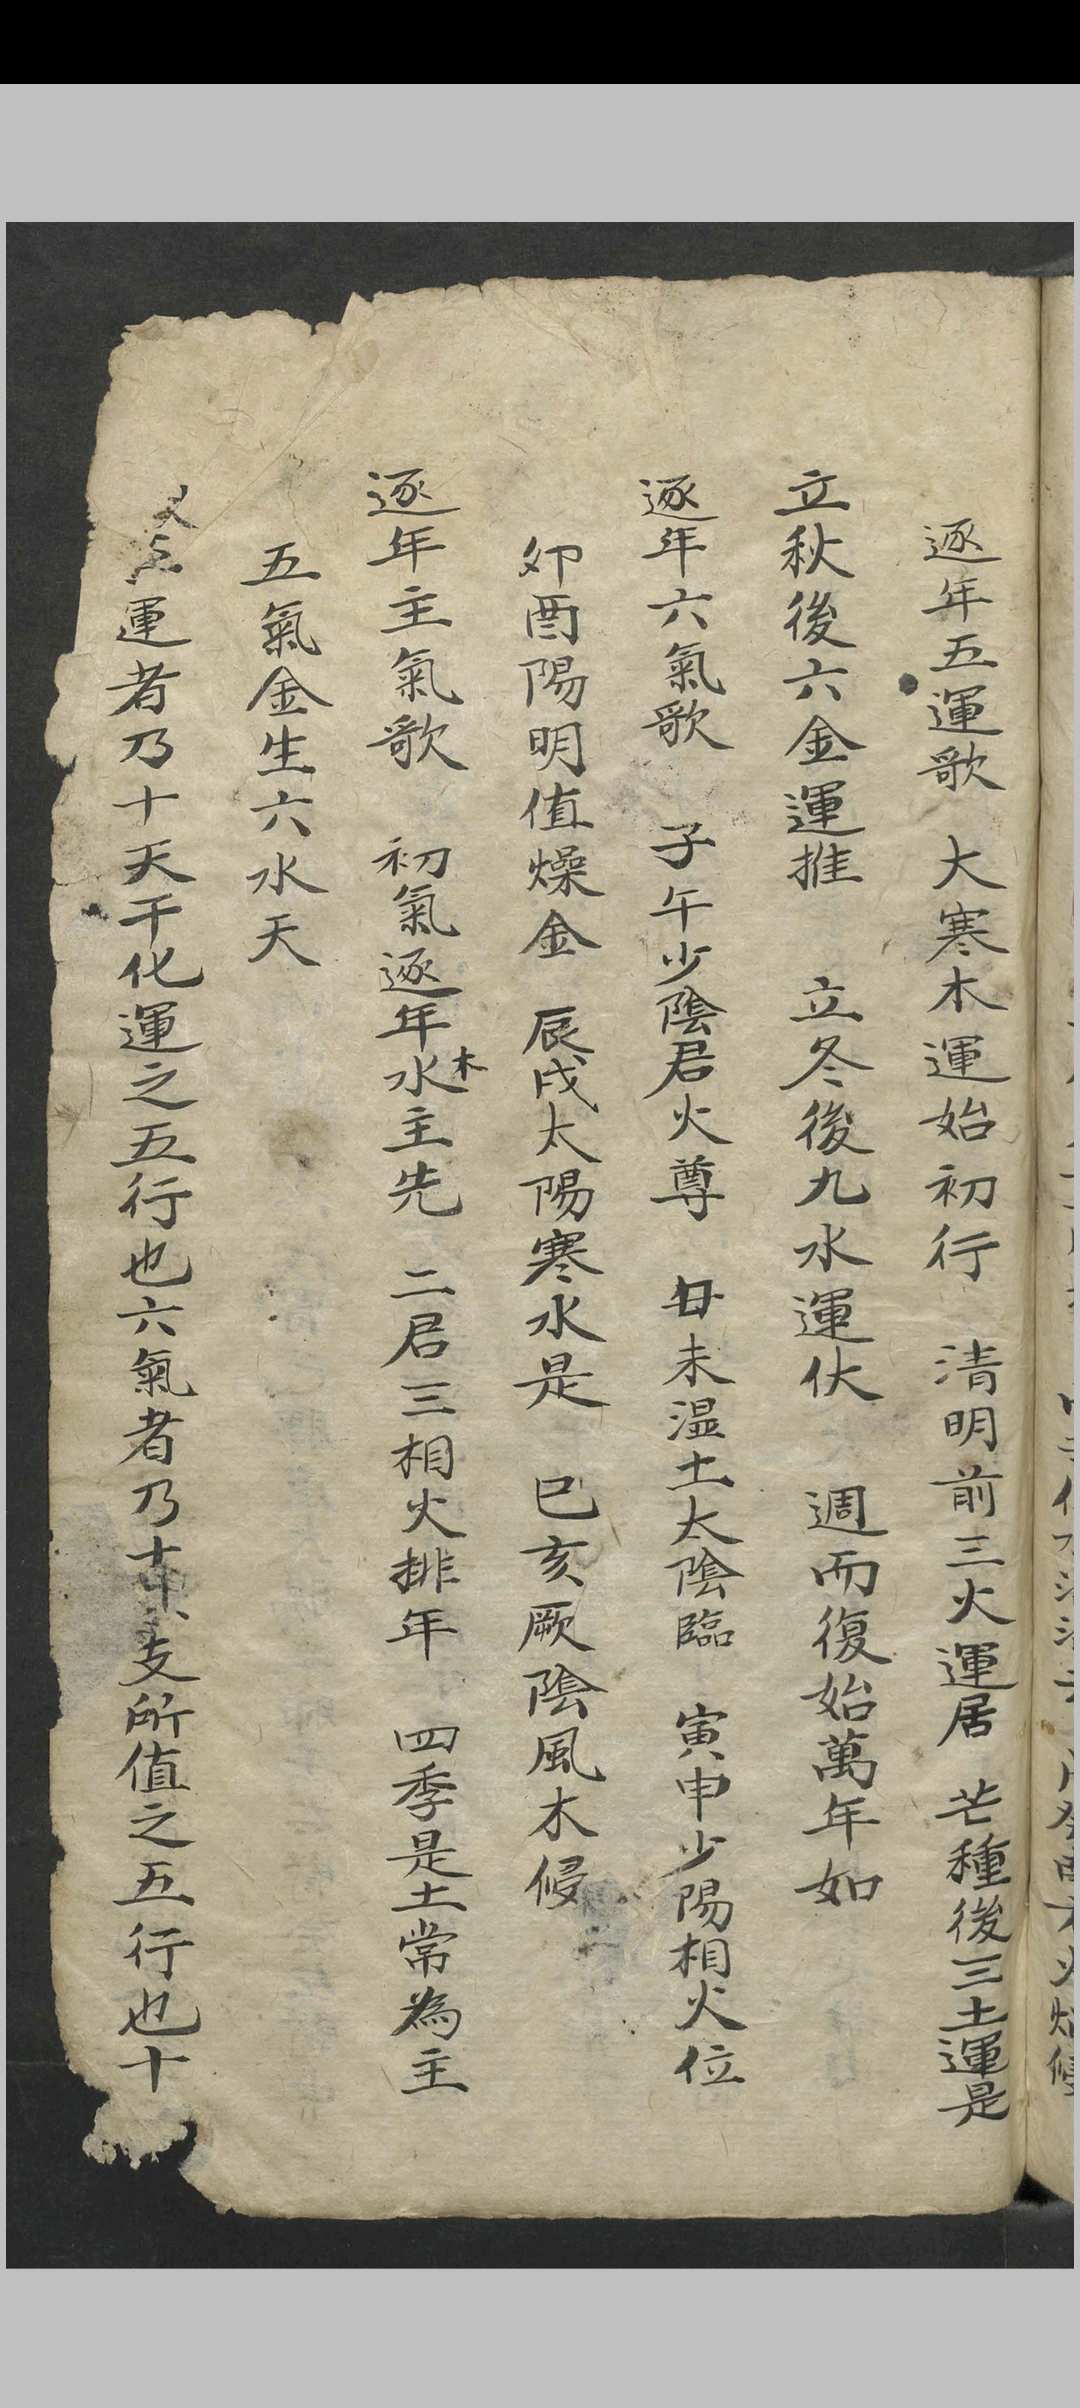 逐年五運歌 大寒木運始初行 清明前三火運居 芒種後三土運是
立秋後六金運推 立冬後九水運伏 週而復始萬年如
逐年六氣歌 子午少陰君火尊 丑未湿土太陰臨 寅申少陽相火位
卯酉陽明值燥金 辰戌太陽寒水是 巳亥厥陰風木侵
逐年主氣歌 初氣逐年水木主先 二君三相火排年 四季是土常為主
五氣金生六水天
五運者乃十天干化運之五行也六氣者乃十支所值之五行也十